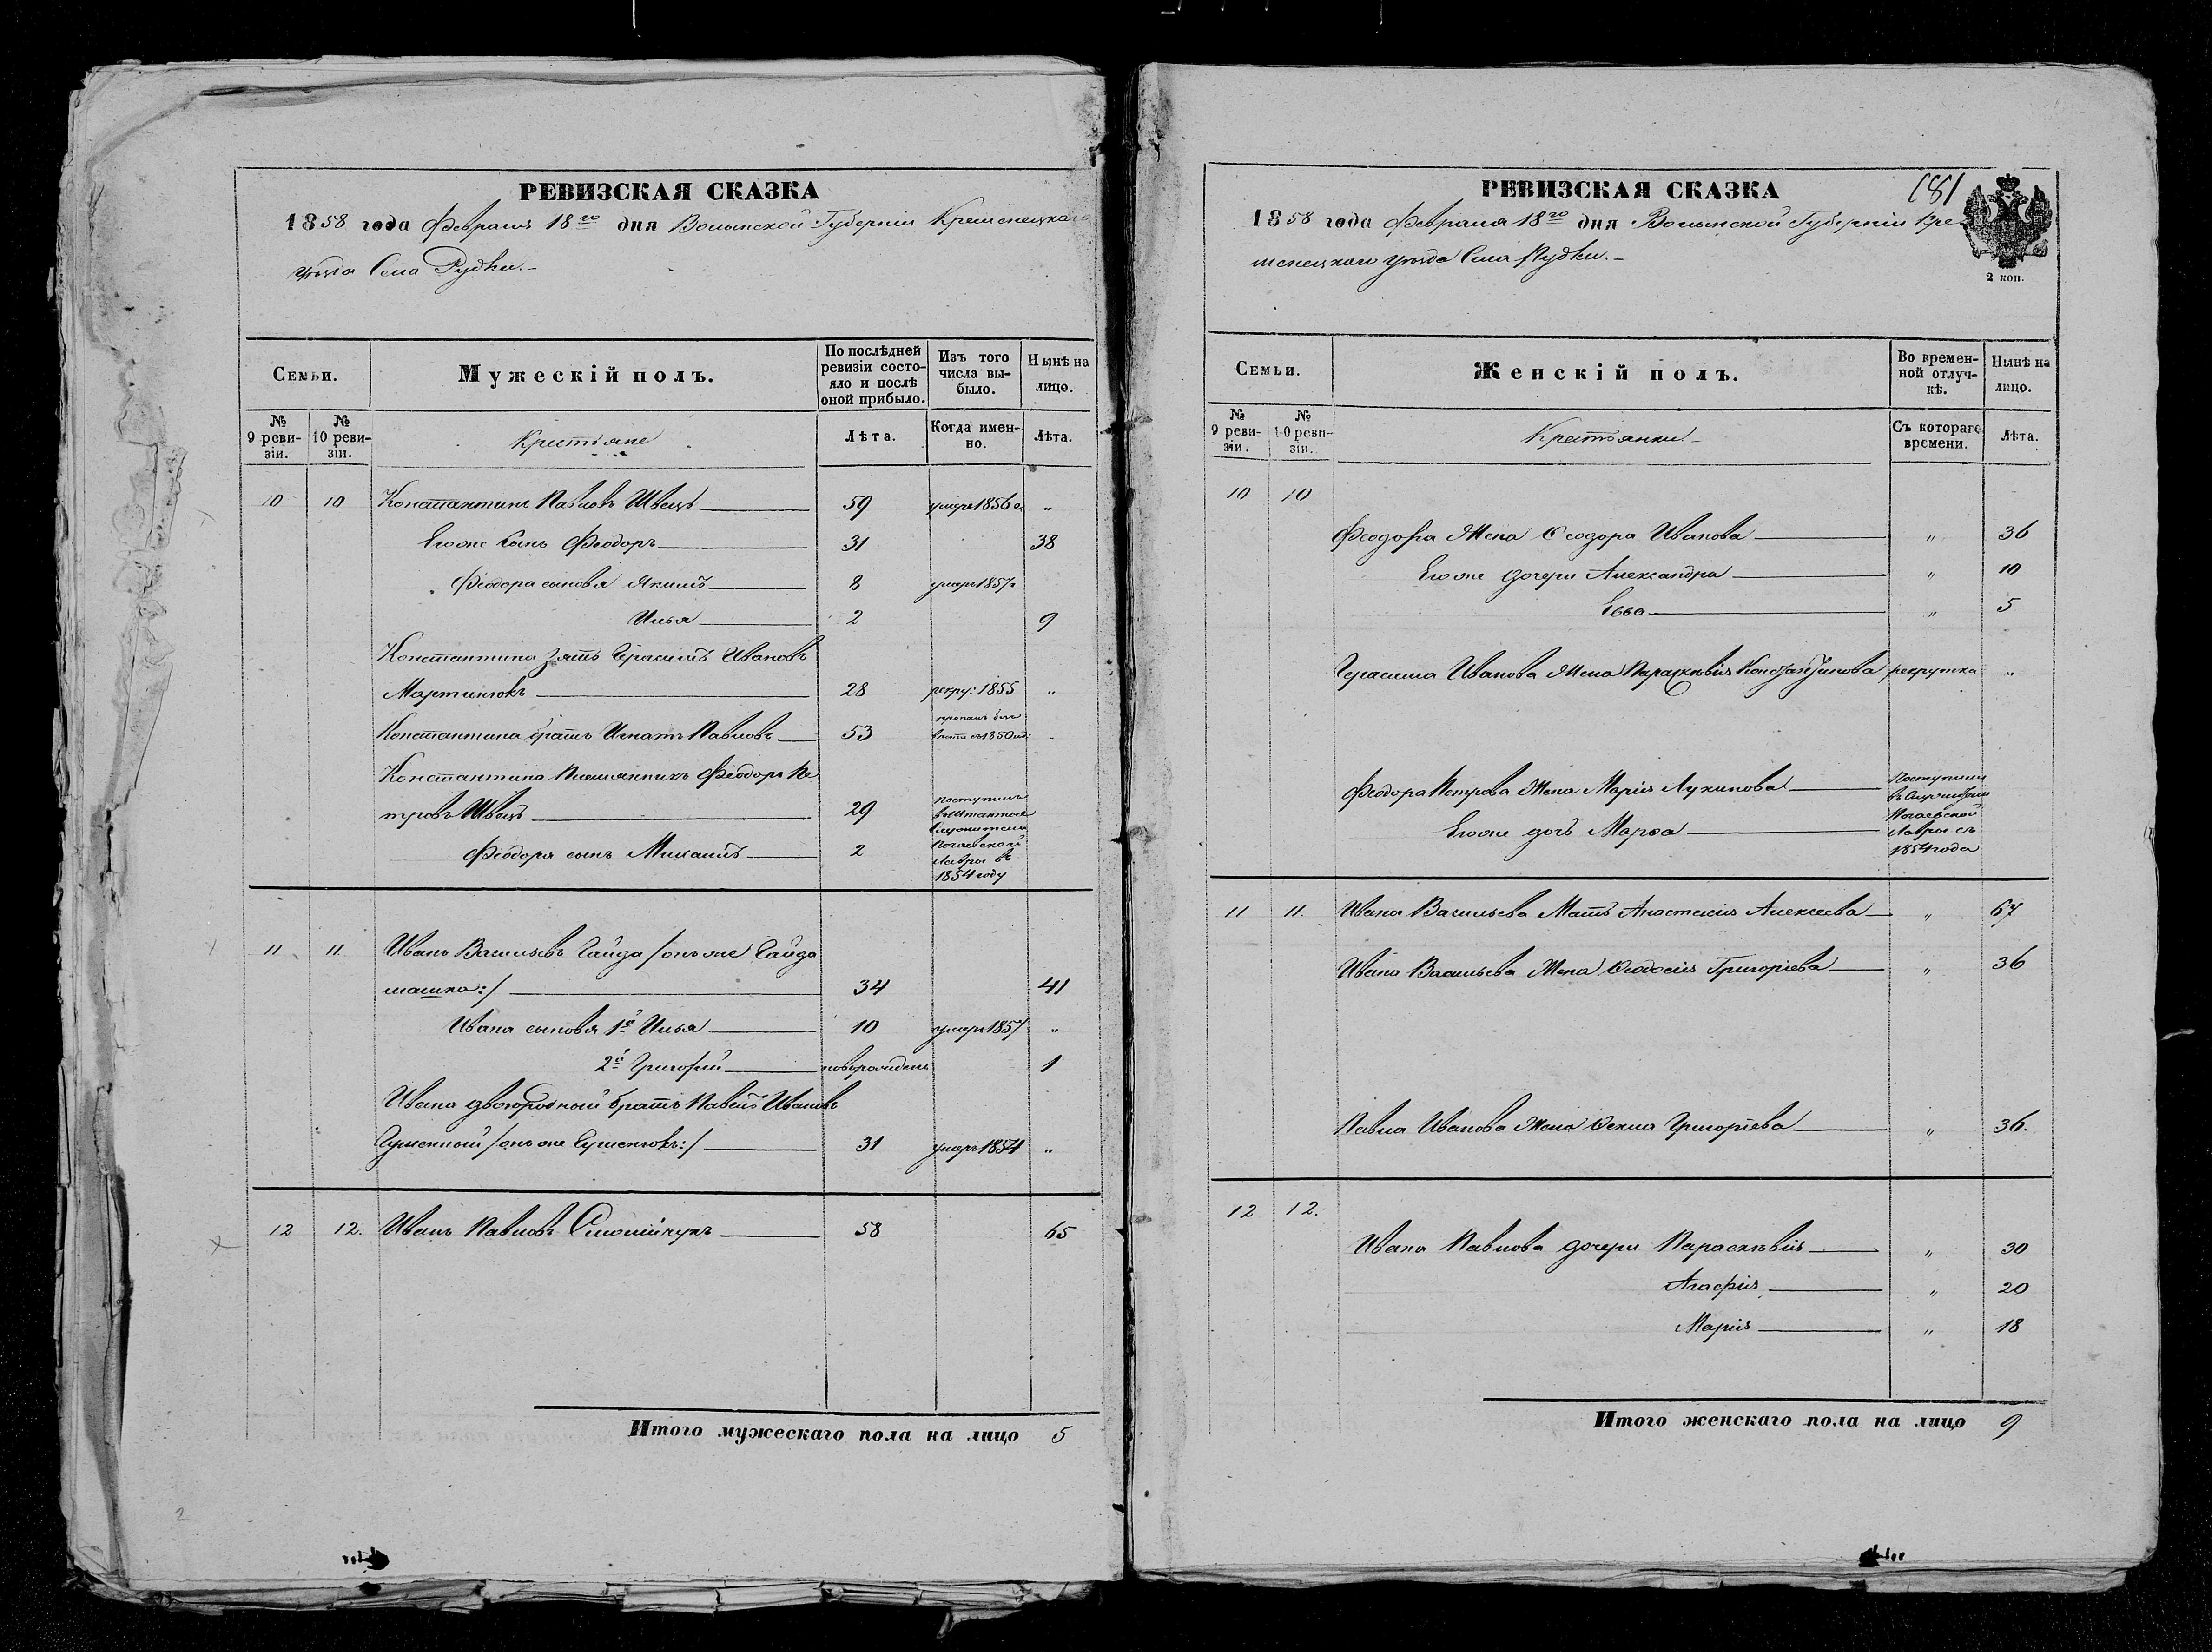 РЕВИЗСКАЯ СКАЗКА
1858 года Февраля 18го дня Волынской Губерніи Кременецкаго
уѣзда Села Рудки.-
Семьи.
Мужескій полъ.
По послѣдней ревизіи состояло и послѣ оной прибыло.
Изъ того числа выбыло.
Нынѣ на лицо.
№ 9 ревизіи.
№ 10 ревизіи.
Крестьяне
Лѣта.
Когда именно.
Лѣта.
10 10 Константинъ Павловъ Швецъ 59 умеръ 1856 г. "
Его же сынъ Феодоръ 31 38
Феодора сыновья Якимъ 8 умеръ 1857 г
Илья 2 9
Константина зять Герасимъ Ивановъ
Мартинюкъ 28 рекру: 1855 "
Константина братъ Игнатъ Павловъ 53 пропалъ безъ вѣсти съ 1850 год: -
Константина Племянникъ Феодоръ Пе
тровъ Швецъ 29
Феодора сынъ Михаилъ 2
поступилъ
въ штатные
служители
Почаевской
Лавры въ
1854 году
11 11 Иванъ Васильевъ Гайда /онъ же Гайда
машка:/ 34 41
Ивана сыновья 1й Илья 10 умеръ 1857 "
2й Григорій новорожденъ 1
Ивана двоюродный братъ Павелъ Ивановъ
/онъ же 31 умеръ 1854 "
12 12. Иванъ Павловъ 58 65
Итого мужескаго пола на лицо 5
181
РЕВИЗСКАЯ СКАЗКА
1858 года Февраля 18го дня Волынской Губерніи Кре
менецкаго уѣзда Села Рудки.-
2 коп.
Семьи.
Женскій полъ.
Во временной отлучкѣ.
Нынѣ на лицо.
№ 9 ревизіи.
№ 10 ревизіи.
Крестьянки.-
Съ котораго времени.
Лѣта.
10 10
Феодора Жена Ѳеодора Иванова " 36
Его же дочери Александра " 10
Евва " 5
Герасима Иванова Жена Параскѣвія Константинова рекрутка "
Феодора Петрова Жена Марія Лукинова
Его же дочь Марѳа
Поступили
въ
Почаевской
Лавры съ
1854 года
11 11. Ивана Васильева Мать Анастасія Алексеева " 67
Ивана Васильева Жена Ѳеодосія Григоріева " 36
Павла Иванова Жена Ѳекла Григоріева " 36.
12 12.
Ивана Павлова дочери Параскѣвія " 30
Агафія " 20
Марія " 18
Итого женскаго пола на лицо 9
2